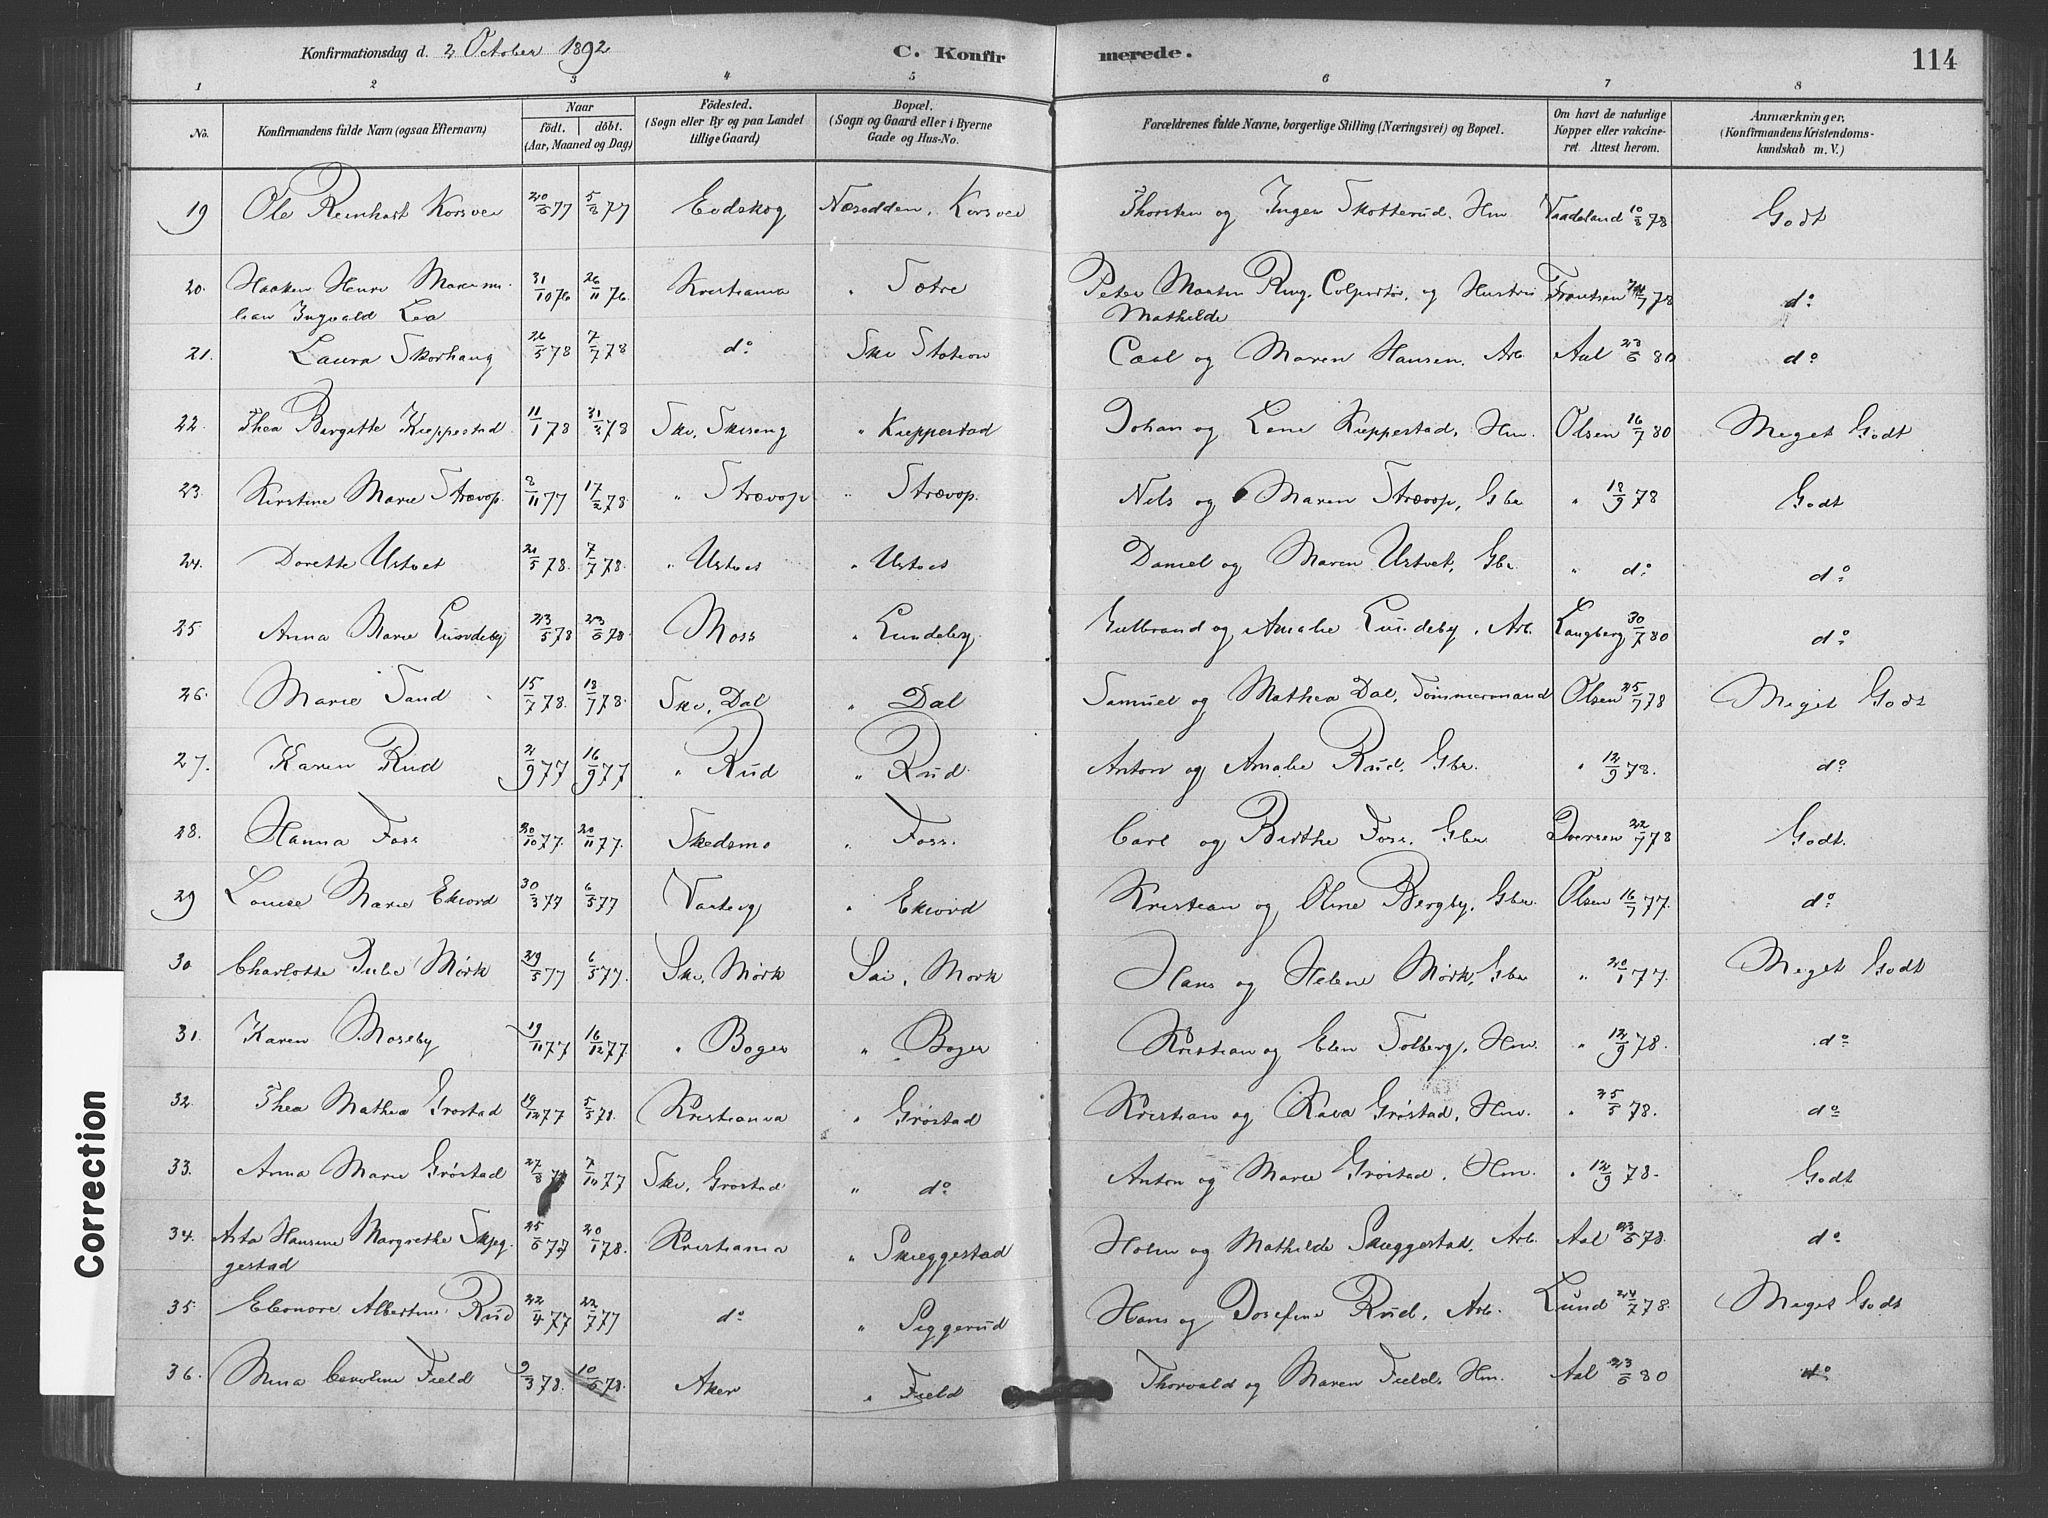 Konfirmationsdag d. 2 October 1892 C. Konfirmerede. 114
1 2 3 4 5 6 7 8
No. Konfirmandens fulde Navn (ogsaa Efternavn) Naar födt. döbt. (Aar, Maaned og Dag) Födested. (Sogn eller By og paa Landet tillige Gaard) Bopæl. (Sogn og Gaard eller i Byerne Gade og Hus-No. Forældrenes fulde Navne, borgerlige Stilling (Næringsvei) og Bopæl. Om havt de naturlige Kopper eller vakcineret. Attest herom. Anmærkninger. (Konfirmandens Kristendomskundskab m. V.)
19 Ole Reinhart Korsvei 5/8 77 Eidskog Næsodden, Korsvei Thorsten og Inger Skotterud, Hm Vaadeland 10/8 78 Godt
20. Haaken Henri Maximilian Ingvald Lea 31/10 76 26/11 76. Kristiania " Sætre Peter Martin Ring, Colportör, og Hustru Mathilde Frantsen 78 do
21. Laura Skorhaug 26/5 78 7/7 78 do Ski Station Carl og Maren Hansen, Arb. Aal 23/6 80 do
22. Thea Birgitte Kieppestad 11/1 78 31/3 78 Ski, Skiseng " Kieppestad Johan og Lene Kieppestad, Hm. Olsen 16/7 80 Meget Godt
23. Kirstine Marie Strævop. 8/11 77 17/2 78. " Strævop " Strævop. Nils og Maren Strævop, Gbr " 18/9 78 Godt
24. Dorette Ustvet 21/5 78. 7/7 78. " Ustvet " Ustvet Daniel og Maren Ustvet, Gbr. " do do
25 Anna Marie Lundeby 23/5 78 23/6 78. Moss " Lundeby. Gulbrand og Amalie Lundeby, Arb. Langberg 30/7 80 do
26. Marie Sand 15/7 78. 18/7 78. Ski, Dal " Dal Samuel og Mathea Dal, Tömmermand Olsen 25/7 78 Meget Godt
27. Karen Rud 2/9 77 16/9 77 " Rud " Rud. Anton og Amalie Rud, Gbr. " 12/9 78. do
28. Hanna Foss 20/10 77. 20/11 77. Skedsmo " Foss. Carl og Birthe Foss, Gbr Iversen 22/7 78 Godt.
29 Louise Marie Ekiord 30/3 77 6/5 77 Varteig " Ekiord Kristian og Oline Bergby, Gbr. Olsen 16/7 77. do
30 Charlotte Julie Mörk 29/3 77 6/5 77. Ski, Mörk Ski, Mork Hans og Helene Mörk, Gbr " 20/1 77. Meget Godt
31. Karen Moseby 19/11 77 16/12 77. " Boger " Boger Kristian og Elen Solberg, Hm. " 12/9 78. do
32. Thea Mathea Gröstad 19/12 77 5/5 78. Kristiania " Gröstad Kristian og Kaia Gröstad, Hm. " 25/5 78. do
33. Anna Marie Gröstad 27/8 77 7/10 77 Ski, Gröstad " do Anton og Marie Gröstad, Hm " 12/9 78. Godt
34. Asta Hansine Margrethe Skjeggestad 25/6 77 20/1 78. Kristiania " Skieggestad Holm og Mathilde Skieggestad, Arb. Aal 23/6 78. do
35. Eleonore Albertine Rud 22/4 77 22/7 77 do " Siggerud Hans og Josefine Rud, Arb. Lund 24/7 78. Meget Godt
36. Mina Caroline Field 9/3 78. 10/6 78. Aker " Field Thorvald og Maren Field, Hm. Aal 23/6 80 do
Correction